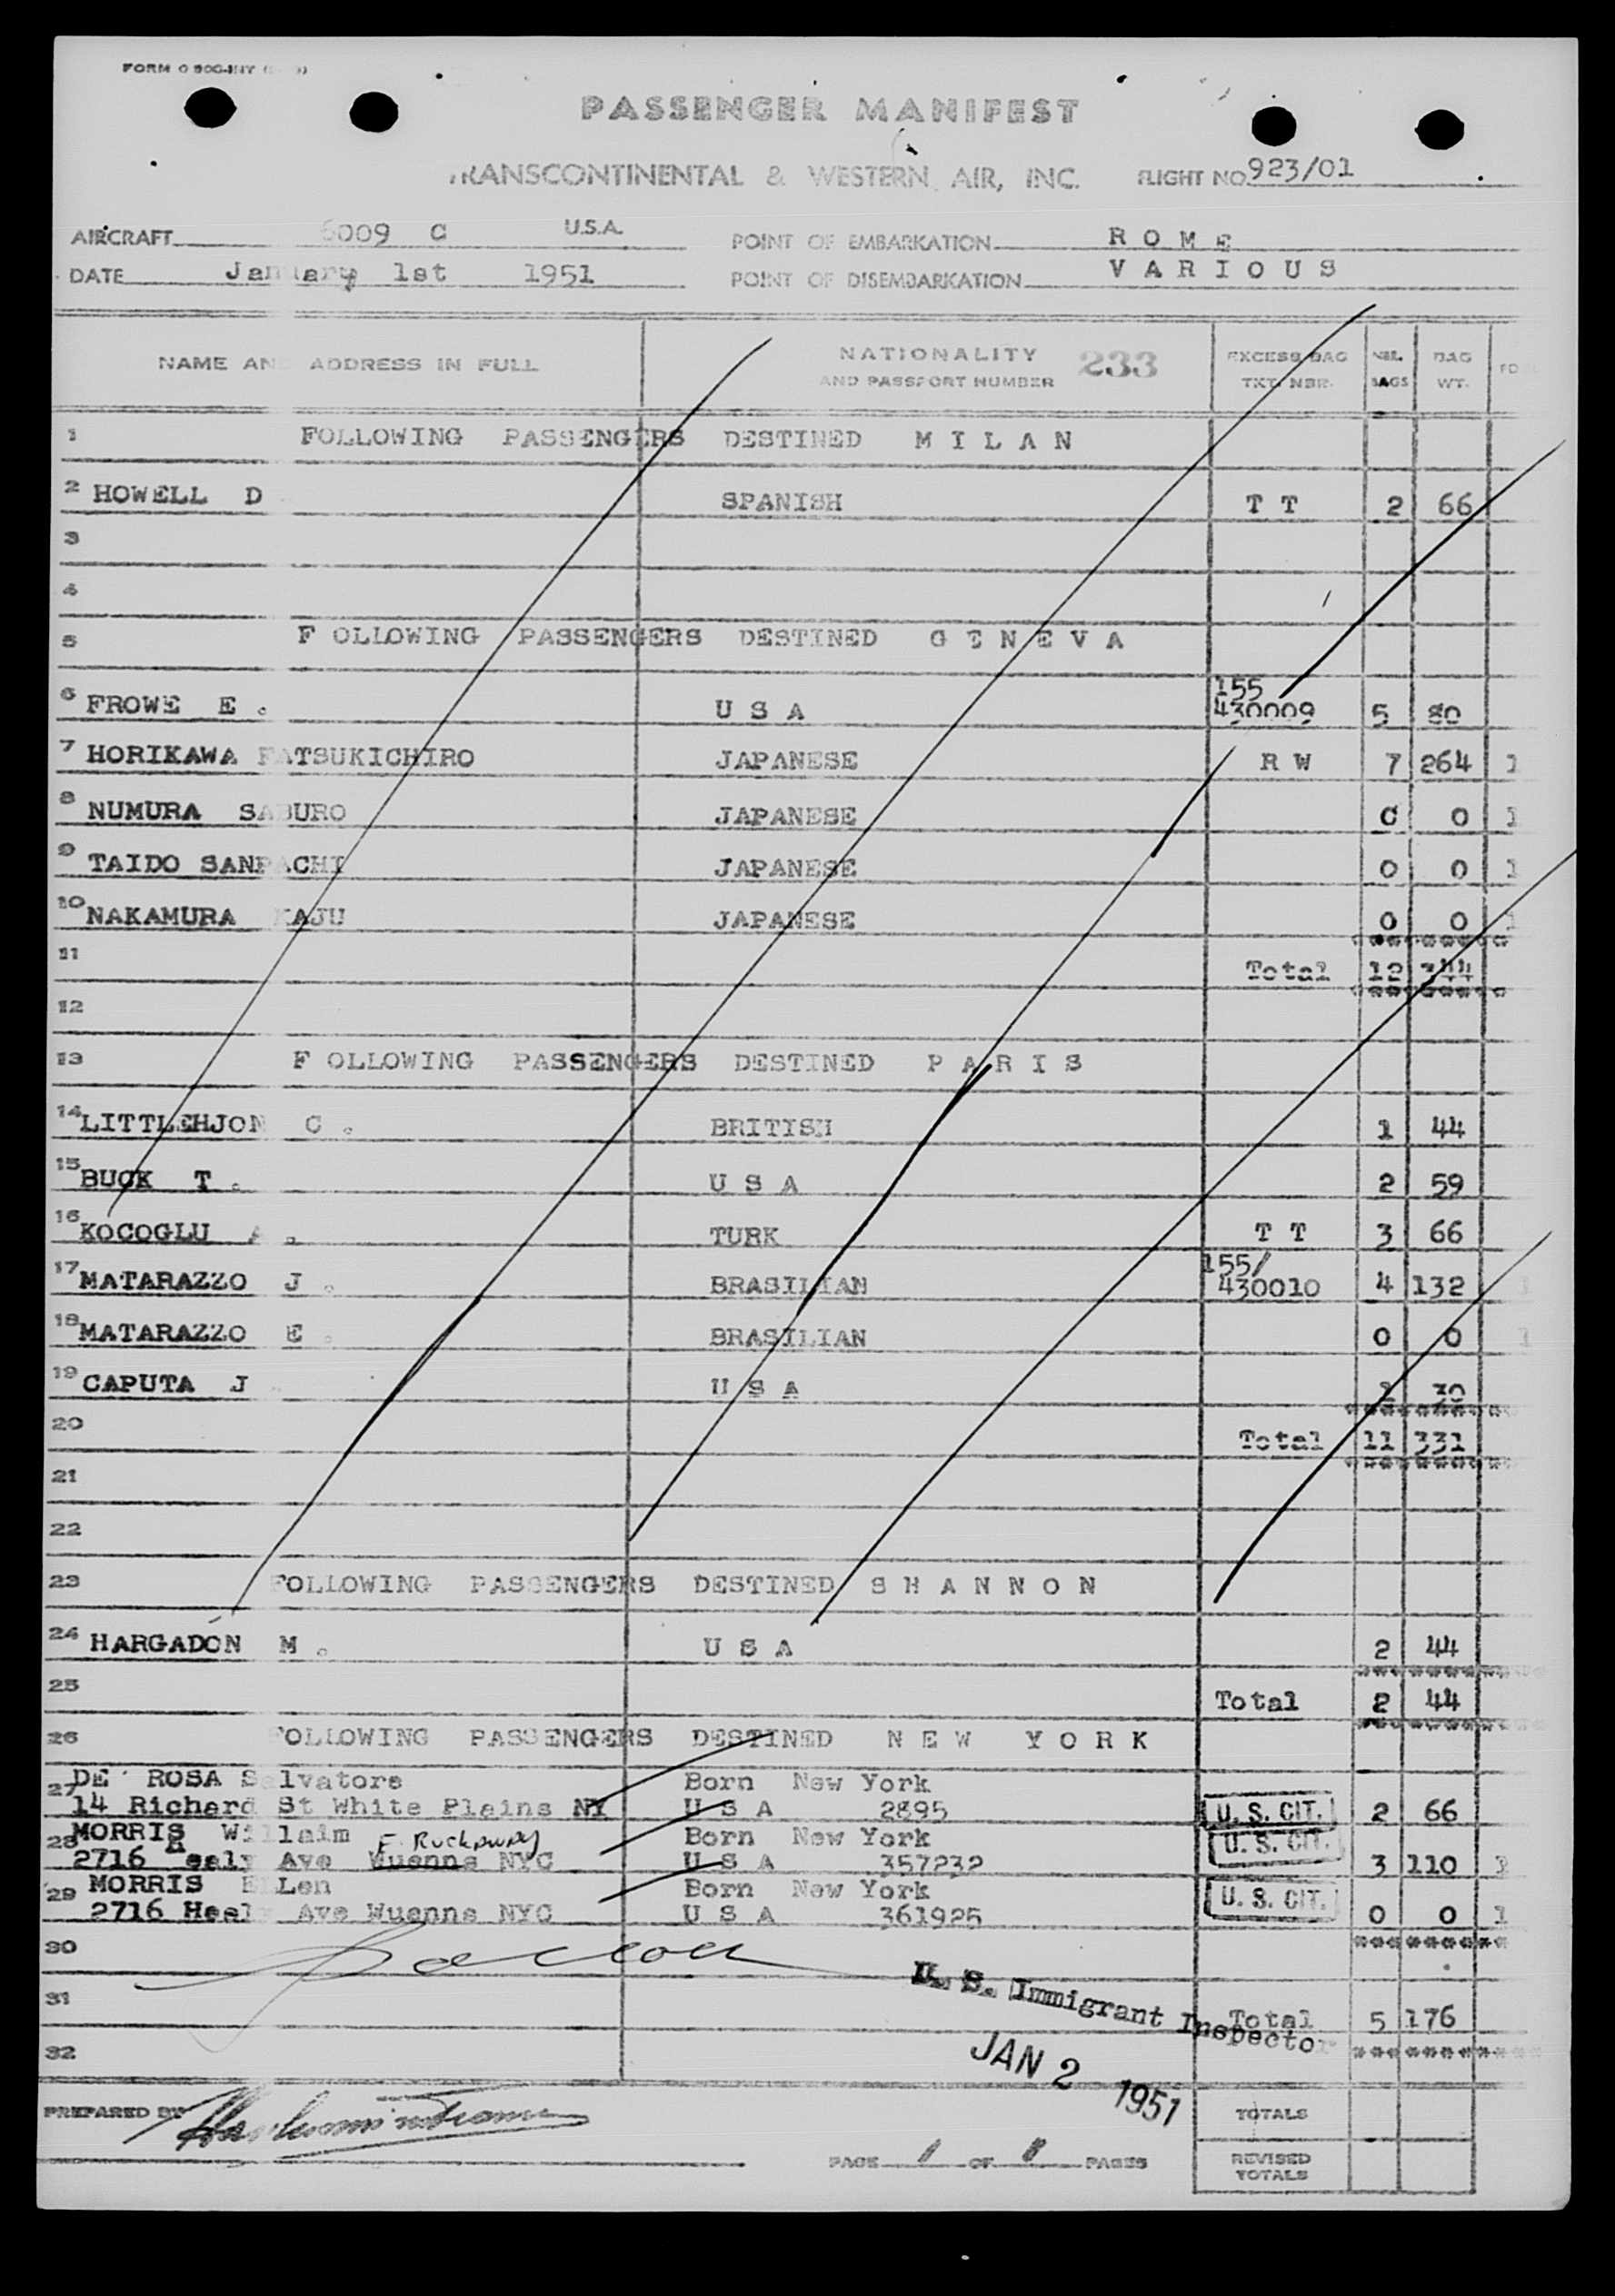 PASSENGER MANIFEST
TRANSCONTINENTAL & WESTERN AIR, INC. FLIGHT NO 923/01
AIRCRAFT 6009 C U.S.A. POINT OF EMBARKATION ROME
DATE January 1st 1951 POINT OF DISEMBARKATION VARIOUS
NAME AND ADDRESS IN FULL NATIONALITY AND PASSPORT NUMBER 233 EXCESS BAG TKT. NBR. NBR. BAGS BAG WT.
1 FOLLOWING PASSENGERS DESTINED MILAN
2 HOWELL D SPANISH T T 2 66
3
4
5 F OLLOWING PASSENGERS DESTINED GENEVA
6 FROWE E. U S A 155 430009 5 80
7 HORIKAWA FATSUKICHIRO JAPANESE R W 7 264 1
8 NUMURA SABURO JAPANESE 0 0 1
9 TAIDO SANPACHI JAPANESE 0 0 1
10 NAKAMURA KAJU JAPANESE 0 0 1
11 Total 12 344
12
13 F OLLOWING PASSENGERS DESTINED PARIS
14 LITTLEHJON C. BRITISH 1 44
15 BUCK T. U S A 2 59
16 KOCOGLU A. TURK T T 3 66
17 MATARAZZO J. BRASILIAN 155/ 430010 4 132 1
18 MATARAZZO E. BRASILIAN 0 0 1
19 CAPUTA J U S A 1 30
20 Total 11 331
21
22
23 FOLLOWING PASSENGERS DESTINED SHANNON
24 HARGADON M. U S A 2 44
25 Total 2 44
26 FOLLOWING PASSENGERS DESTINED NEW YORK
27 DE' ROSA Salvatore Born New York
14 Richard St White Plains NY U S A 2895 U. S. CIT. 2 66
28 MORRIS Willaim F. Rockaway Born New York U. S. CIT.
2716 Healy Ave Wuenna NYC U S A 357232 3 110 1
29 MORRIS ELLen Born New York
2716 Healy Ave Wuenna NYC U S A 361925 U. S. CIT. 0 0 1
30
31 U. S. Immigrant Inspector Total 5 176
32 JAN 2 1951
PREPARED BY TOTALS
PAGE 1 OF PAGES REVISED TOTALS